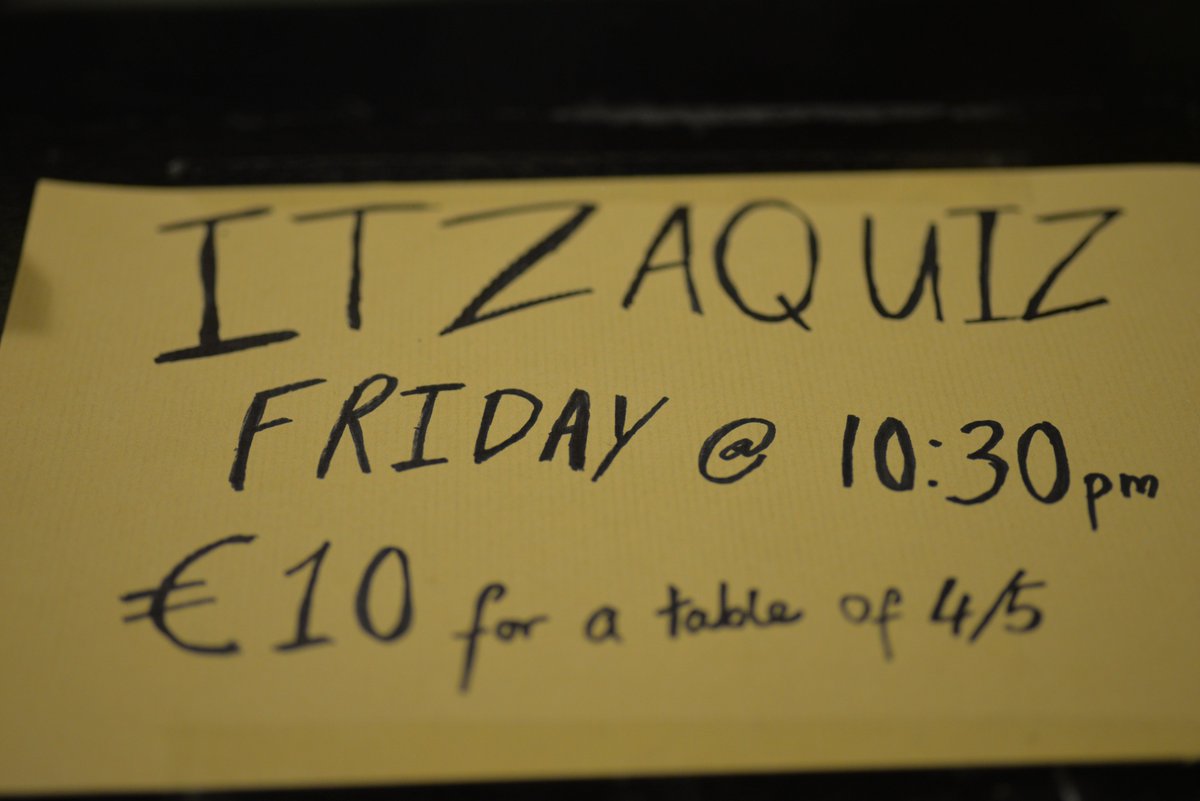 ITZAQUIZ
FRIDAY @ 10:30pm
€10 for a table of 4/5